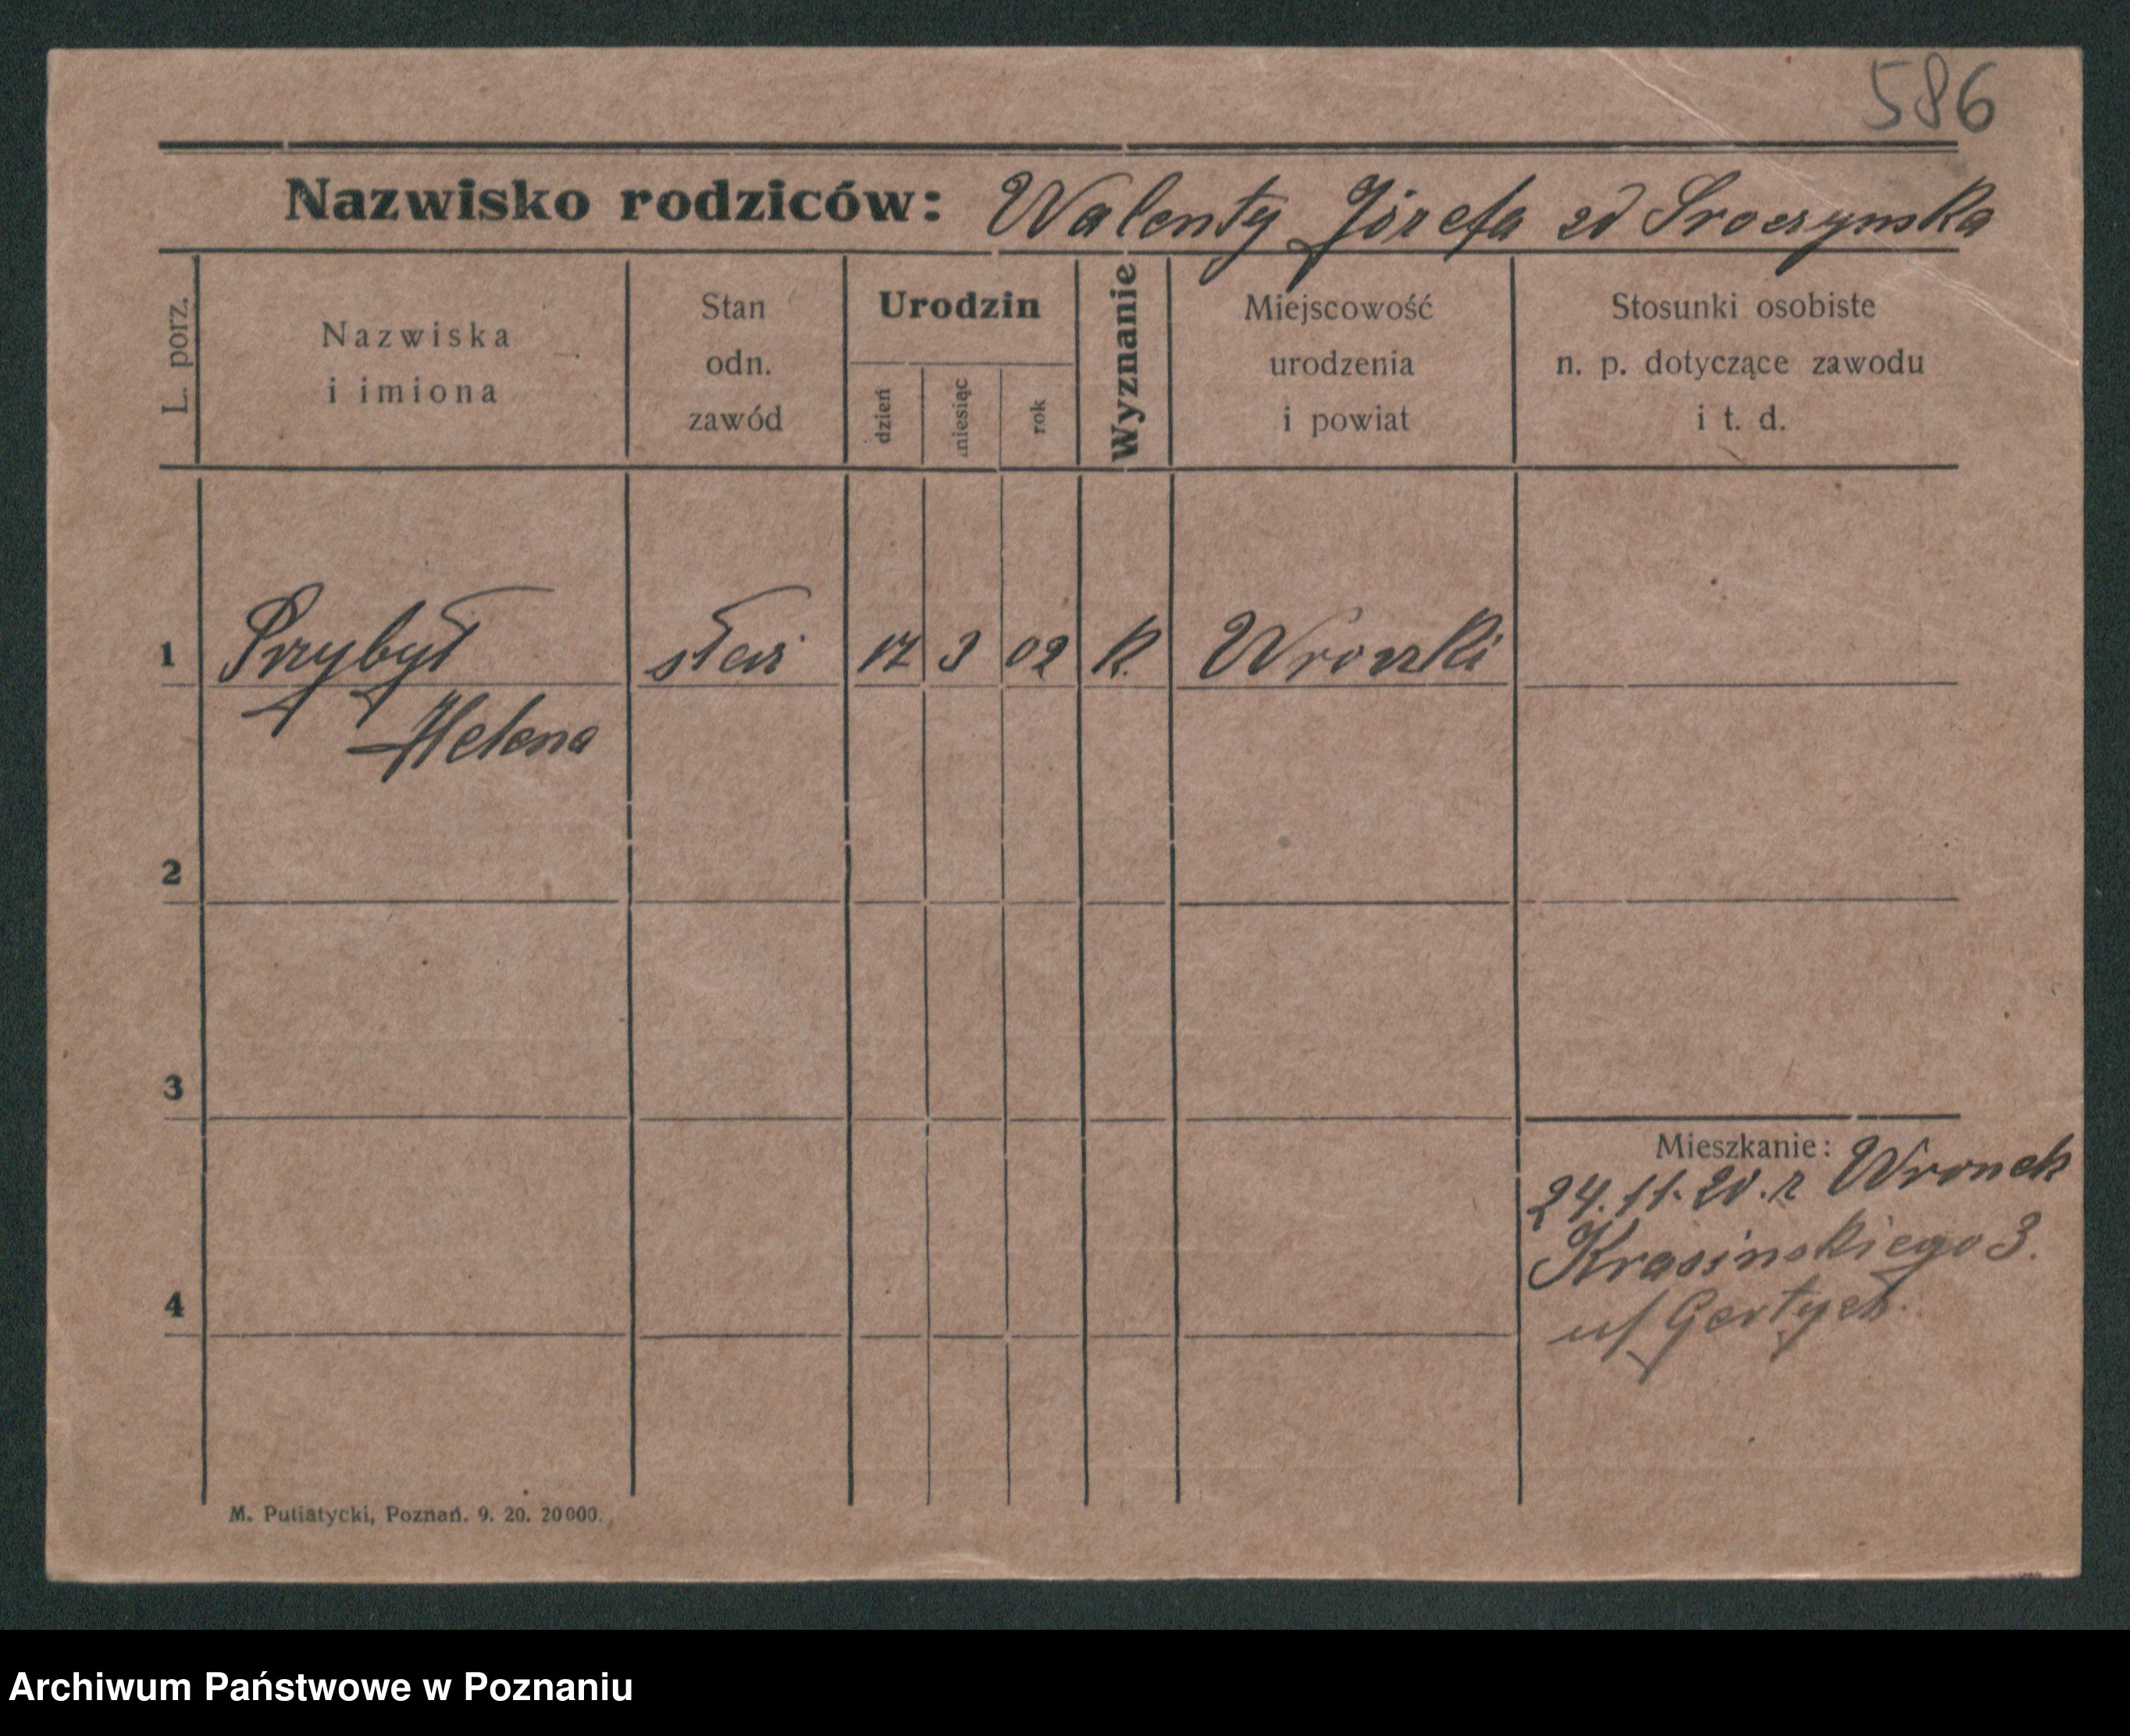 586
Nazwisko rodziców: Walenty Józefa zd Sroczynska
L. porz.
Nazwiska
i imiona
Stan
odn.
zawód
Urodzin
dzień
miesiąc
rok
Wyznanie
Miejscowość
urodzenia
i powiat
Stosunki osobiste
n. p. dotyczące zawodu
i t. d.
1 Przybył 3 02 K. Wronki
Helena
2
3
4
Mieszkanie:
24.11.20. z Wronek
Krasinskiego 3.
u/ Gertych.
M. Putiatycki, Poznań. 9. 20. 20000.
Archiwum Państwowe w Poznaniu